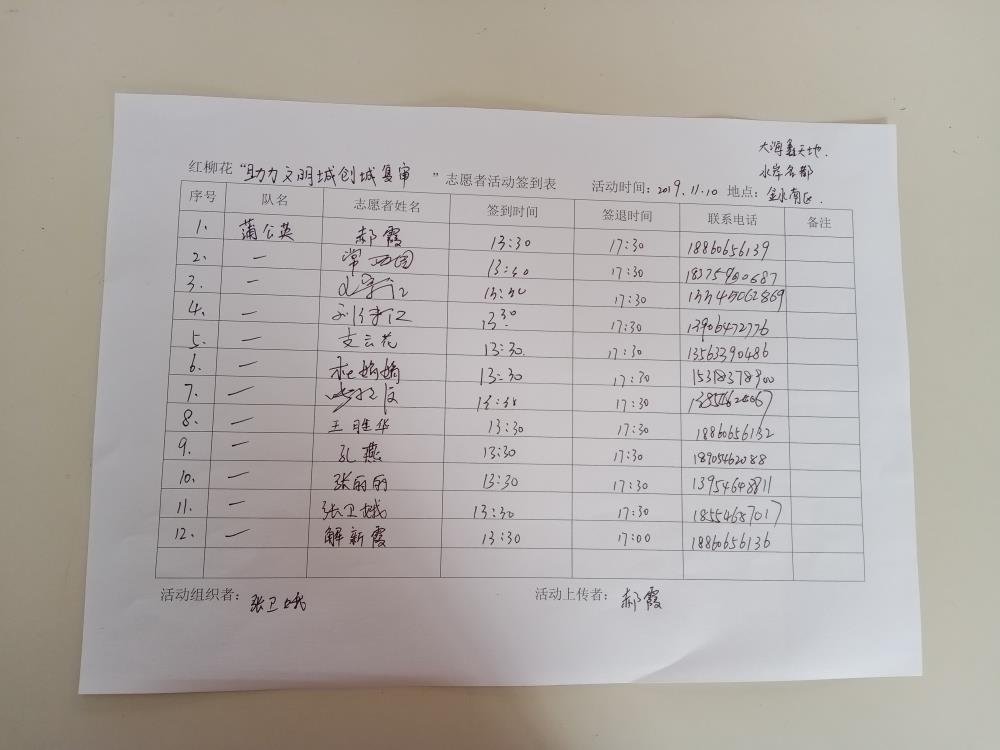 大海新天地.
水岸名都
红柳花“助力文明城创城复审 ”志愿者活动签到表 活动时间：2019.11.10 地点：金水南区.
序号 队名 志愿者姓名 签到时间 签退时间 联系电话 备注
1. 蒲公英 郝霞 13:30 17:30 18860656139
2. 一 常西国 13:30 17:30
3. 一 13:30 17:30
4. 一 13:30 17:30 13906472776
5. 一 支云花 13:30. 17:30 13563390486
6. 一 杜娟娟 13:30 17:30 15318378900
7. 一 13:30 17:30
8. 一 王胜华 13:30 17:30 18860656132
9. 一 孔燕 13:30 17:30 18905462088
10. 一 张丽丽 13:30 17:30 13954648811
11. 一 张卫娥 13:30 17:30 18554687017
12. 一 解新霞 13:30 17:00 18860656136
活动组织者：张卫娥 活动上传者：郝霞